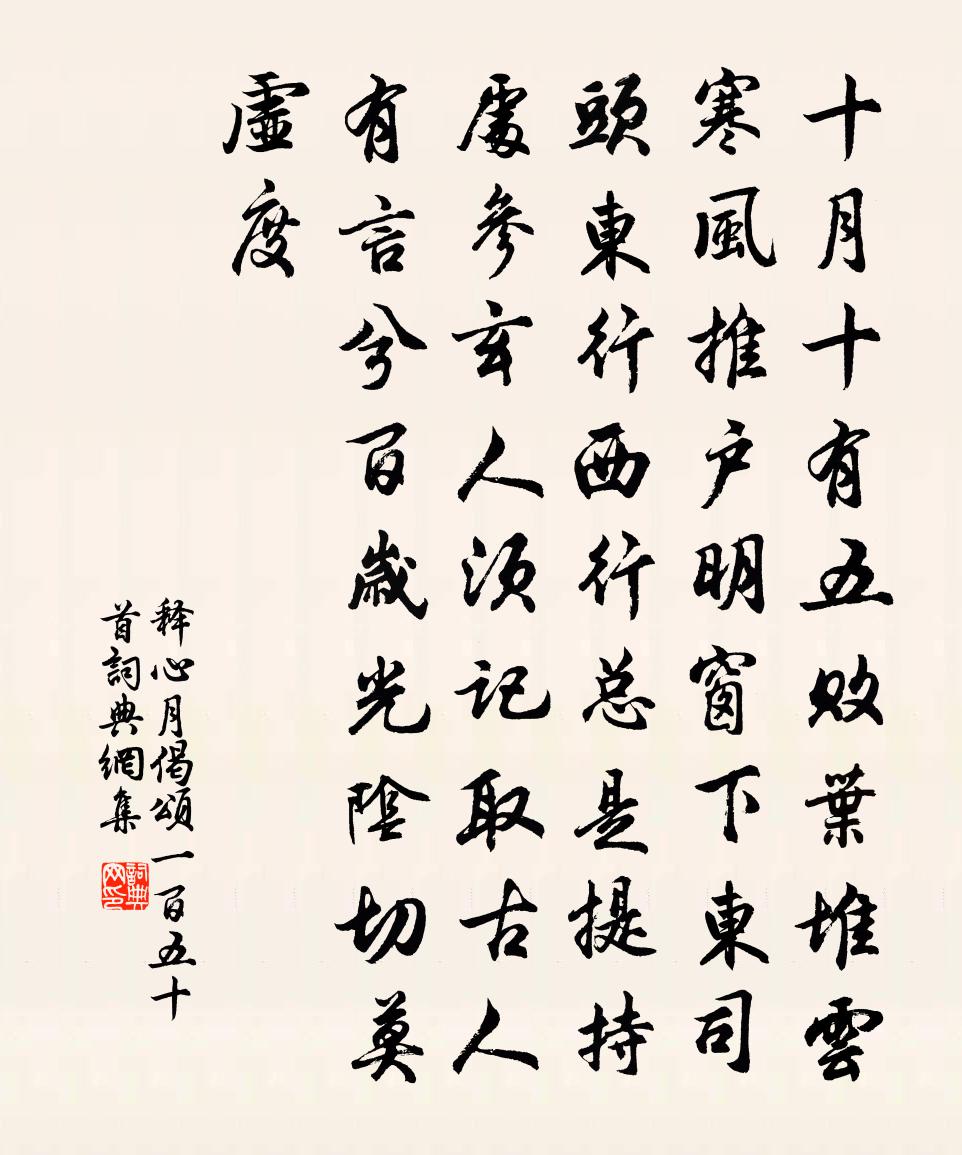 十月十有五敗葉堆雲
寒風推户明窗下東司
頭東行西行总是提持
處參玄人須记取古人
有言兮百歲光陰切莫
虛度
释心月偈頌一百五十
首詞典網集
詞典
网印